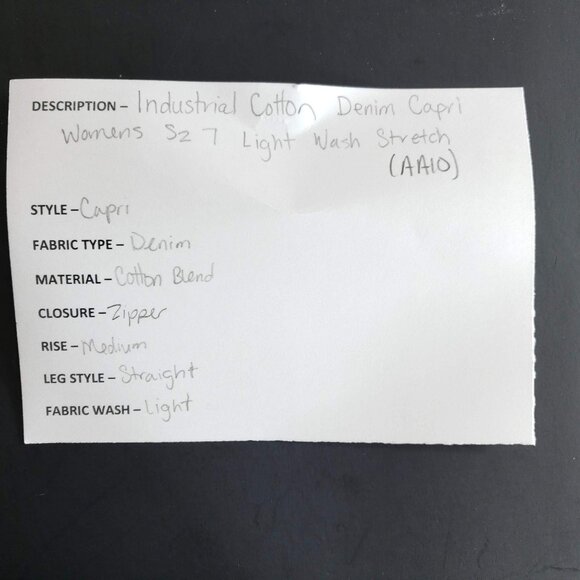 DESCRIPTION – Industrial Cotton Denim Capri
Womens Sz 7 Light Wash Stretch
(AA10)
STYLE – Capri
FABRIC TYPE – Denim
MATERIAL – Cotton Blend
CLOSURE – Zipper
RISE – Medium
LEG STYLE – Straight
FABRIC WASH – Light